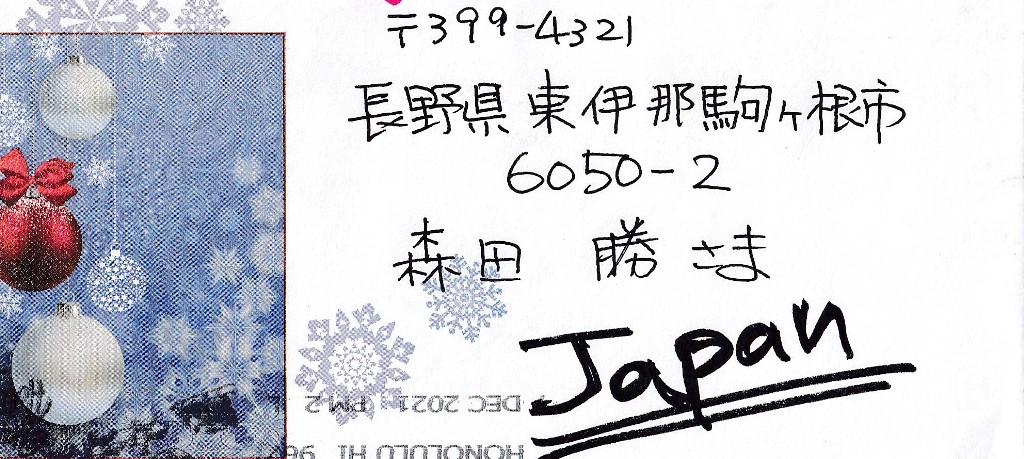 〒399-4321
長野県東伊那駒ヶ根市
6050-2
森田 勝 さま
Japan
DEC 2021 PM 2
HONOLULU HI 96